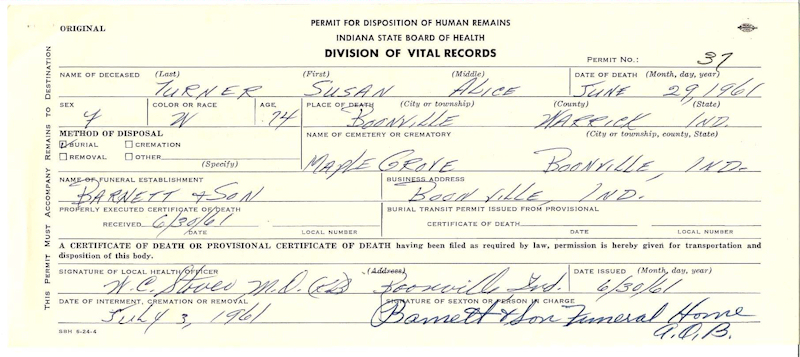 ORIGINAL
PERMIT FOR DISPOSITION OF HUMAN REMAINS
INDIANA STATE BOARD OF HEALTH
DIVISION OF VITAL RECORDS
PERMIT NO.: 37
THIS PERMIT MUST ACCOMPANY REMAINS TO DESTINATION
NAME OF DECEASED (Last) (First) (Middle) DATE OF DEATH (Month, day, year)
TURNER SUSAN ALICE JUNE 29, 1961
SEX COLOR OR RACE AGE PLACE OF DEATH (City or township) (County) (State)
W 74 BOONVILLE WARRICK IND.
METHOD OF DISPOSAL NAME OF CEMETERY OR CREMATORY (City or township, county, State)
BURIAL CREMATION
REMOVAL OTHER
(Specify)
MAPLE GROVE BOONVILLE, IND.
NAME OF FUNERAL ESTABLISHMENT BUSINESS ADDRESS
BARNETT & SON BOONVILLE, IND.
PROPERLY EXECUTED CERTIFICATE OF DEATH BURIAL TRANSIT PERMIT ISSUED FROM PROVISIONAL
RECEIVED 6/30/61 CERTIFICATE OF DEATH
DATE LOCAL NUMBER DATE LOCAL NUMBER
A CERTIFICATE OF DEATH OR PROVISIONAL CERTIFICATE OF DEATH having been filed as required by law, permission is hereby given for transportation and
disposition of this body.
SIGNATURE OF LOCAL HEALTH OFFICER (Address) DATE ISSUED (Month, day, year)
W.C. Stover M.D. Boonville Ind. 6/30/61
DATE OF INTERMENT, CREMATION OR REMOVAL SIGNATURE OF SEXTON OR PERSON IN CHARGE
JULY 3, 1961 Barnett & Son Funeral Home
SBH 6-24-4